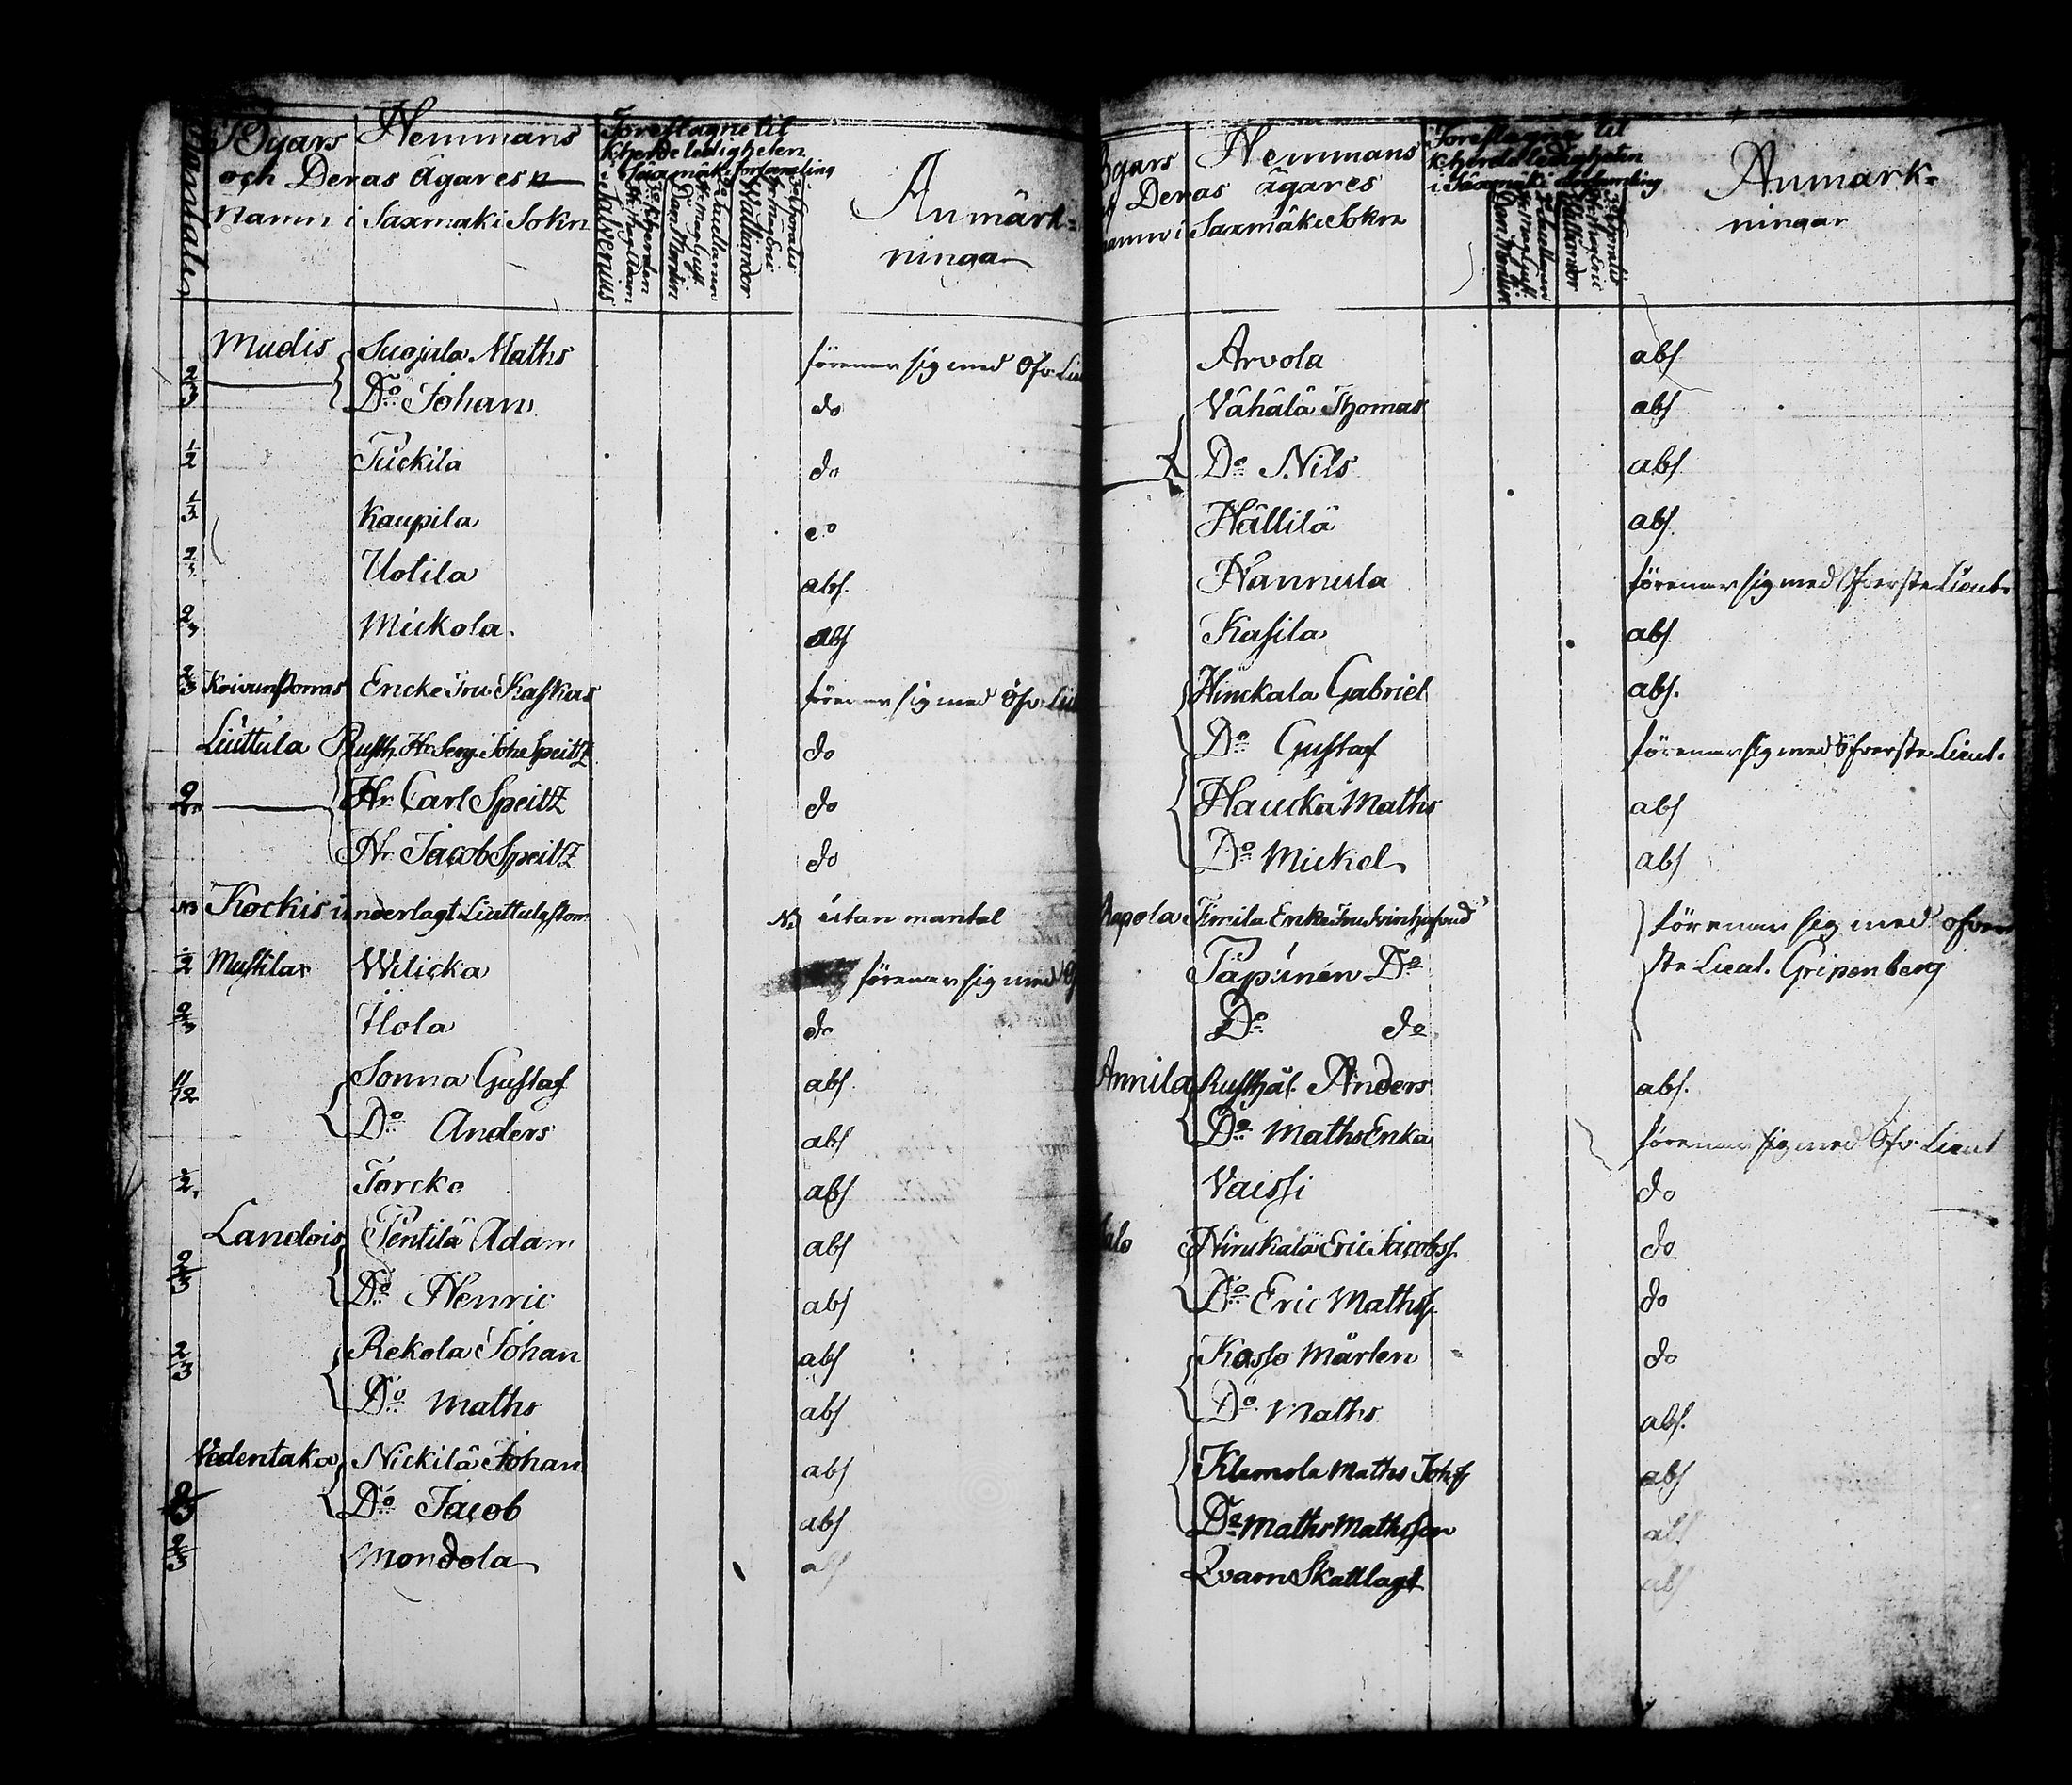 Mantaler
Byars Hemmans
och Deras Ägares
Namn i Saxmäki Sokn
Föreslagne til
Kherdeledigheten
i Säxmäki församling
Salvenius
Dan. Nordin
Walliander
Anmärk-
ninga
Mudis Sugjala Maths förenar sig med Öfv. Lieu
2/3 Do Johan do
1/2 Tuckila do
1/2 Kaupila do
2/3 Uotila abs.
2/3 Mickola abs
2/3 Encke fru Kaskas förenar sig med Öfv. Lieu
Liuttula Rusth. Hr Serg. Joh Speitz do
2 Hr Carl Speitz do
Hr Jacob Speitz do
Kockis underlagt Liuttula N. utan mantal
1/2 Mustila Wilicka förenar sig med Öf
2/3 Ilola do
11/12 Sonna Gustaf abs.
Do Anders abs
1/2 Torcko abs
Landois Pentilä Adam abs
2/3 Do Henric abs
2/3 Rekola Johan abs
Do Maths abs
Vedentaka Nickilä Johan abs
2/3 Do Jacob abs
2/3 Mondola abs
Byars Hemmans
och Deras ägares
Namn i Saxmäki Sokn
Föreslagna til
Kherdeledigheten
i Säxmäki församling
Dan. Nordin
Wallander
Anmärk-
ningar
Arvola abs
Vähälä Thomas abs
Do Nils abs.
Hällilä abs.
Hannula förenar sig med Öfverste Lieut.
Kasila abs.
Hinckala Gabriel abs.
Do Gustaf förenar sig med Öfverste Lieut.
Haucka Maths abs
Do Mickel abs
Rapola Timila Enke fru förenar sig med öfver
Tapinen Do ste Lieut. Gripenberg
Do do
Annila Rusthål Anders abs.
Do Maths Enka förenar sig med Öfv. Lieut
Vaissi do
Hinckala Eric Jacobss. do
Do Eric Mathss. do
Kosso Mårten do
Do Maths abs.
Klemola Maths Johss abs
Do Maths Mathsson abs.
Qvarn Skattlagt abs